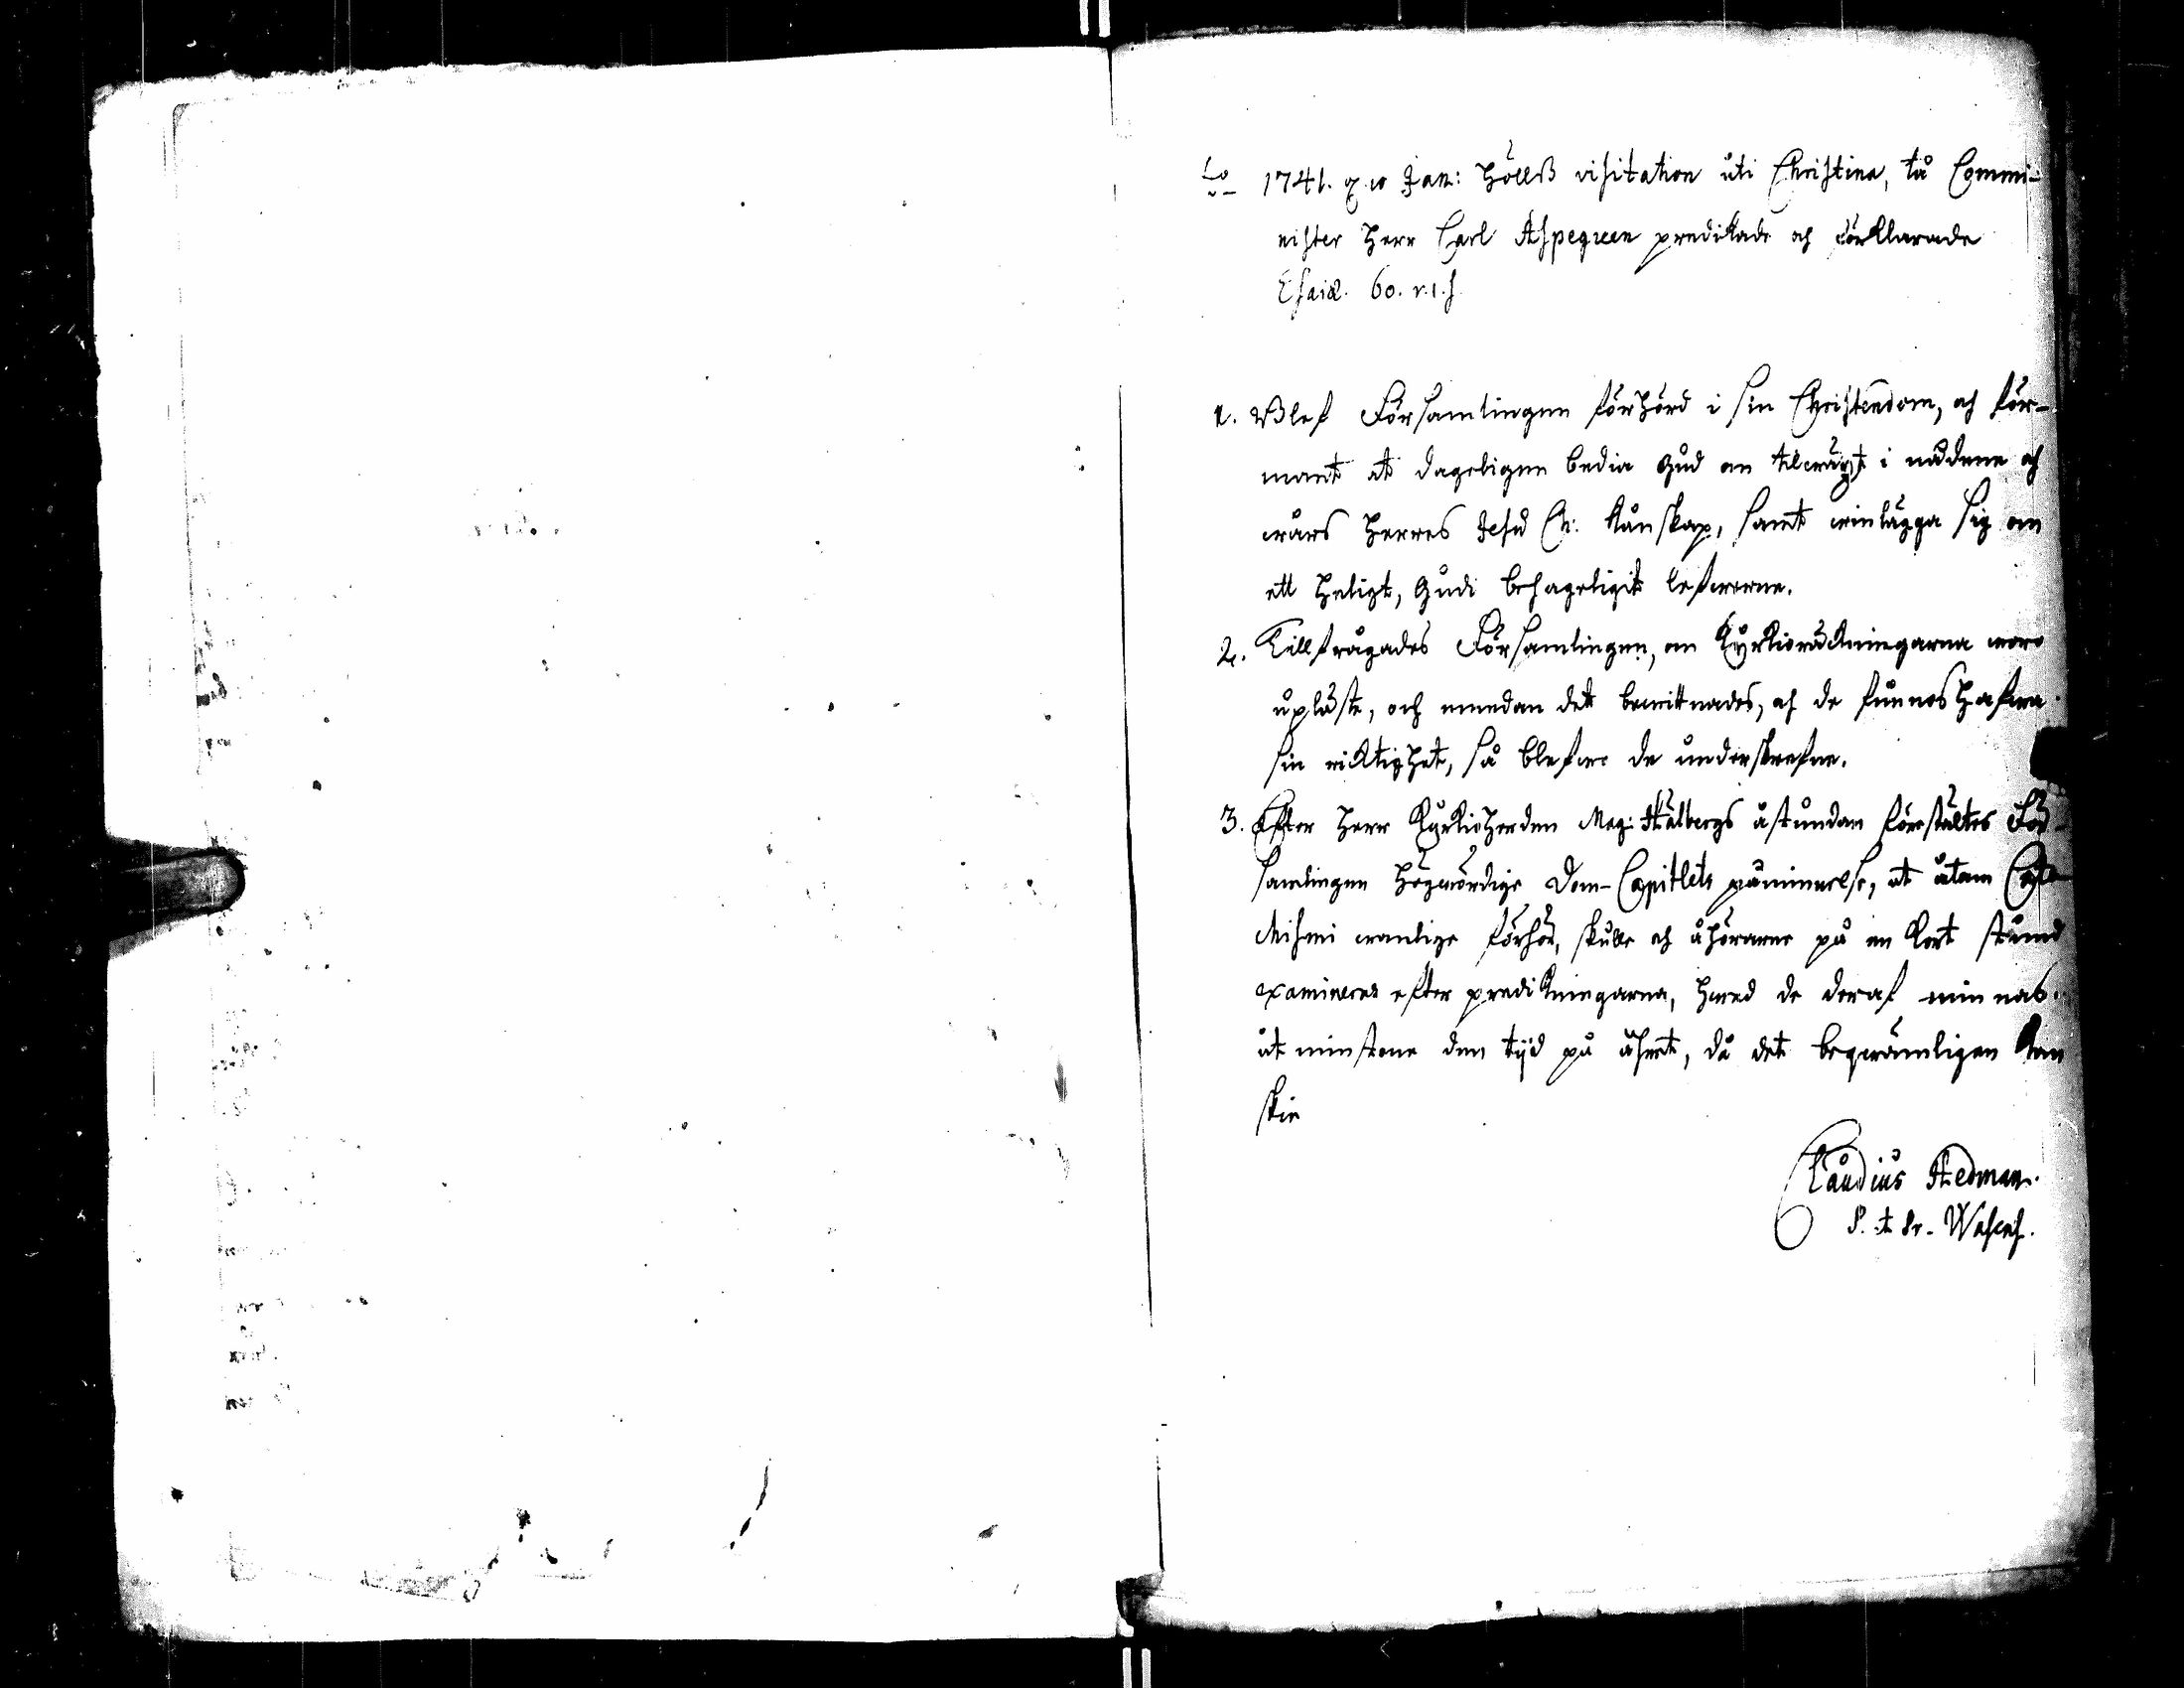 Ao 1741. d. 10 Jan: hölls visitation uti Christina, tå Commi-
nister Herr Carl Aspegreen predikade och förklarade
Esaiæ. 60. v. 1. s.
1. Blef Församlingen förhörd i sin Christendom, och för-
mant at dageligen bedia Gud om tilwäxt i nådene och
wårs Herres Jesu Ch: kunskap, samt winlägga sig om
ett heligt, Gudi behageligit lefwerne.
2. Tillfrågades Församlingen, om Kyrkioräckningarna woro
upläste, och emedan det bewittnades, och de funnos hafwa
sin ricktighet, så blefwe de underskrefne.
3. Efter Herr Kyrkioherden Mag: Stålbergs åstundan förestältes För-
samlingen högwördige Dom-Capitlets påminnelse, at utom
chismi wanlige förhör, skulle och åhörarne på en kort stund
examineras efter predikningarna, hwad de deraf minnas.
åt minstone den tijd på åhret, då det beqwämligen kan
skie
Claudius Hedman.
P. & Pr. Wasens.